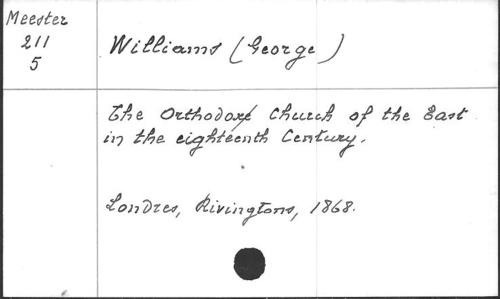 Meester
211
5
Williams (George)
The Orthodox Church of the East
in the eighteenth Century.
Londres, Rivingtons, 1868.